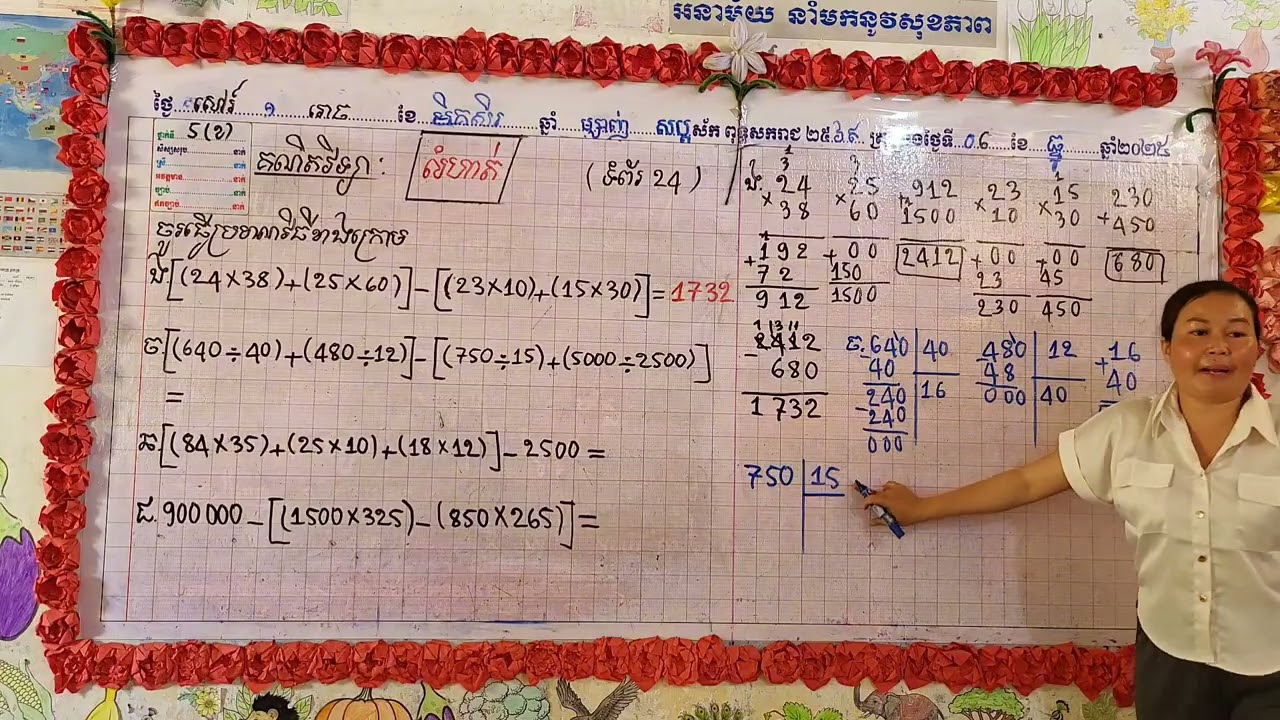 អនាម័យ នាំមកនូវសុខភាព
ថ្ងៃ...សៅរ៍...១...រោច...ខែ...មិគសិរ...ឆ្នាំ...ម្សាញ់...សប្តស័ក ពុទ្ធសករាជ ២៥៦៩ ត្រូវនឹងថ្ងៃទី...06...ខែ...ធ្នូ...ឆ្នាំ២០២៥
ថ្នាក់ទី 5(ខ)
គណិតវិទ្យា :
លំហាត់
(ទំព័រ 24)
ចូរធ្វើប្រមាណវិធីខាងក្រោម
ង.[(24×38)+(25×60)]-[(23×10)+(15×30)]=1732
ច.[(640÷40)+(480÷12)]-[(750÷15)+(5000÷2500)]
=
ឆ.[(84×35)+(25×10)+(18×12)]-2500=
ជ.900 000-[(1500×325)-(850×265)]=
ង. 24 × 38
+192
72
912
25 × 60
+00
150
1500
+912
1500
2412
23 × 10
+00
23
230
15 × 30
+00
45
450
230
+450
680
2412
- 680
1732
ច. 640 40
40 16
240
-240
000
480 12
48 40
000
+16
40
750 15